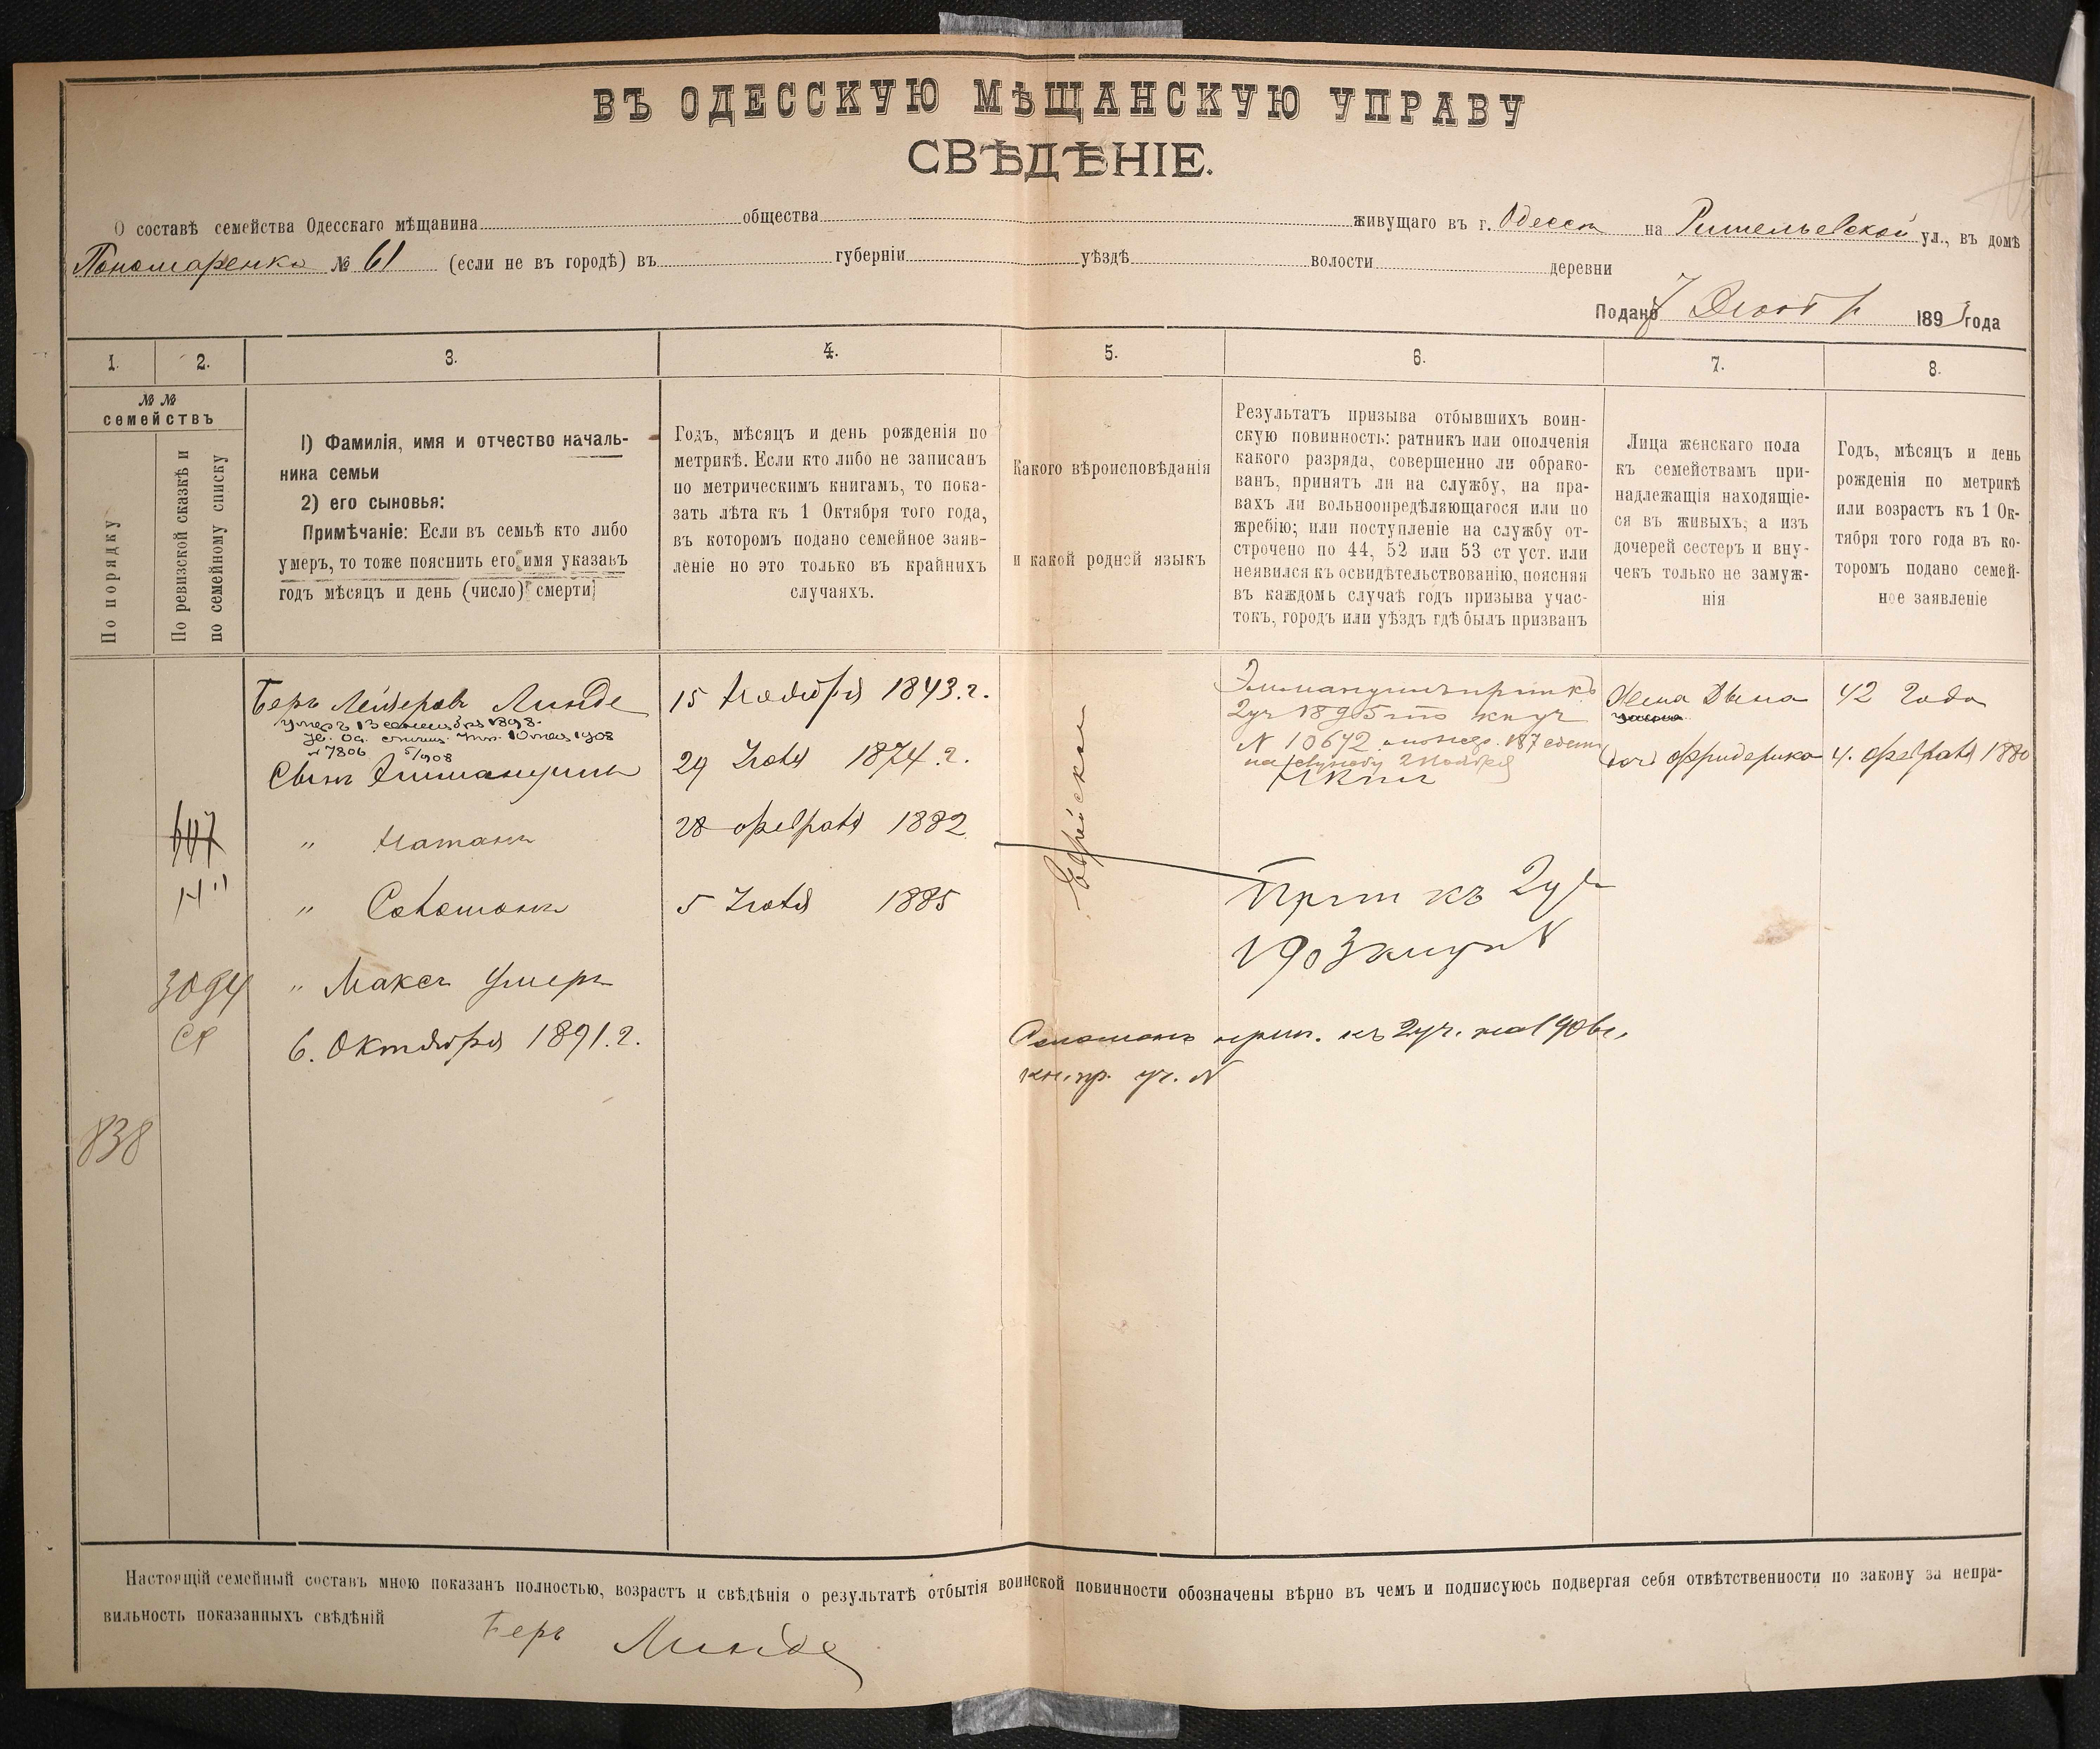 ВЪ ОДЕССКУЮ МѢЩАНСКУЮ УПРАВУ
СВѢДѢНІЕ.
О составѣ семейства Одесскаго мѣщанина общества живущаго въ г. Одессѣ на Ришельевской ул., въ домѣ
Пономаренко № 61 (если не въ городѣ) въ губерніи уѣздѣ волости деревни
Подано 7 189 года
1. 2. 3. 4. 5. 6. 7. 8.
№ №
семействъ
По порядку
По ревизской сказкѣ и
по семейному списку
1) Фамилія, имя и отчество началь-
ника семьи
2) его сыновья:
Примѣчаніе: Если въ семьѣ кто либо
умеръ, то тоже пояснить его имя указавъ
годъ мѣсяцъ и день (число) смерти
Годъ, мѣсяцъ и день рожденія по
метрикѣ. Если кто либо не записанъ
по метрическимъ книгамъ, то пока-
зать лѣта къ 1 Октября того года,
въ которомъ подано семейное заяв-
леніе но это только въ крайнихъ
случаяхъ.
Какого вѣроисповѣданія
и какой родной языкъ
Результатъ призыва отбывшихъ воин-
скую повинность: ратникъ или ополченія
какого разряда, совершенно ли обрако-
ванъ, принятъ ли на службу, на пра-
вахъ ли вольноопредѣляющагося или по
жребію; или поступленіе на службу от-
строчено по 44, 52 или 53 ст уст. или
неявился къ освидѣтельствованію, поясняя
въ каждомъ случаѣ годъ призыва учас-
токъ, городъ или уѣздъ гдѣ былъ призванъ
Лица женскаго пола
къ семействамъ при-
надлежащія находящіе-
ся въ живыхъ, а изъ
дочерей сестеръ и вну-
чекъ только не замуж-
нія
Годъ, мѣсяцъ и день
рожденія по метрикѣ
или возрастъ къ 1 Ок-
тября того года въ ко-
торомъ подано семей-
ное заявленіе
Беръ Лейзеровъ Линде 15 Ноября 1843.г. Жена Дына 42 года
умеръ 13 1898.
1908
№ 7806 5/908
Сынъ Эммануилъ 29 Іюля 1874.г. дочь Фридерика 4. Февраля 1880
Эммануилъ прип къ
2 уч 1895
№ 10642
на службу 2 Ноября
607
" Натанъ 28 февраля 1882
" Соломонъ 5 Іюля 1885
Еврейскій
Прип къ 2 уч
1903 №
3094
" Максъ умеръ
6. Октября 1891.г.
Соломонъ прип. къ 2 уч. на 1906 г.
кн. пр. уч. №
838
Настоящій семейный составъ мною показанъ полностью, возрастъ и свѣдѣнія о результатѣ отбытія воинской повинности обозначены вѣрно въ чемъ и подписуюсь подвергая себя отвѣтственности по закону за непра-
вильность показанныхъ свѣдѣній
Беръ Линде